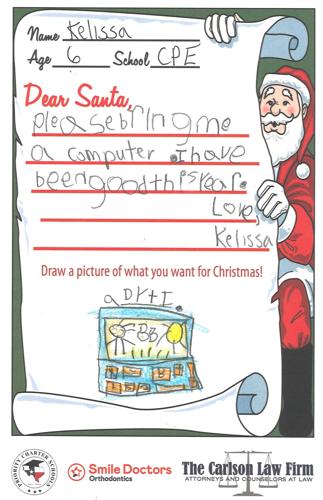 Name Kelissa
Age 6 School CPE
Dear Santa,
please bring me
a computer I have
been good this year.
Love,
Kelissa
Draw a picture of what you want for Christmas!
FBB
PRIORITY CHARTER SCHOOLS
Smile Doctors
Orthodontics
The Carlson Law Firm
ATTORNEYS AND COUNSELORS AT LAW